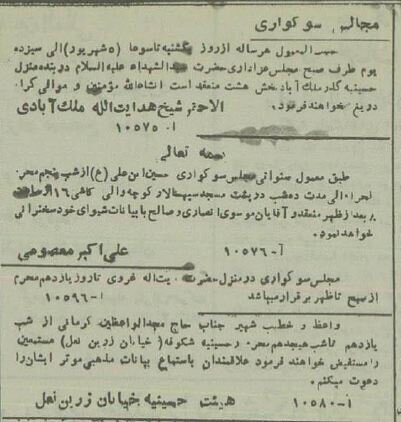 مجالس سوگواری
حسب المعمول هرساله ازروز یکشنبه تاسوعا (۵ شهریور) الی سیزده
یوم طرف صبح مجلس عزاداری حضرت سیدالشهداء علیه السلام در بنده منزل
حسینیه گذر ملک آباد بخش هشت منعقد است انشاءالله مؤمنین و موالی کرام
دریغ نخواهند فرمود.
الاحقر شیخ هدایت الله ملک آبادی
آ- ۱۰۵۷۵
بسمه تعالی
طبق معمول سنواتی مجلس سوگواری حسین ابن علی (ع) از شب پنجم محرم
الحرام الی مدت ده شب در پشت مسجد سپهسالار کوچه والی کاشی ۱۶ از ساعت
۸ بعد از ظهر منعقد و آقایان موسوی انصاری و صالح با بیانات شیوای خود سخنرانی
خواهند نمود.
آ- ۱۰۵۷۶ علی اکبر معصومی
مجلس سوگواری در منزل حضرت آیت اله غروی تا روز یازدهم محرم
از صبح تا ظهر برقرار میباشد آ- ۱۰۵۹۶
واعظ و خطیب شهیر جناب حاج مجدالواعظین کرمانی از شب
یازدهم تا شب هیجدهم محرم در حسینیه شکوفه (خیابان زرین نعل) مستمعین
را مستفیض خواهند فرمود علاقمندان باستماع بیانات مذهبی موثر ایشان را
دعوت میکنیم.
آ- ۱۰۵۸۰ هیئت حسینیه خیابان زرین نعل